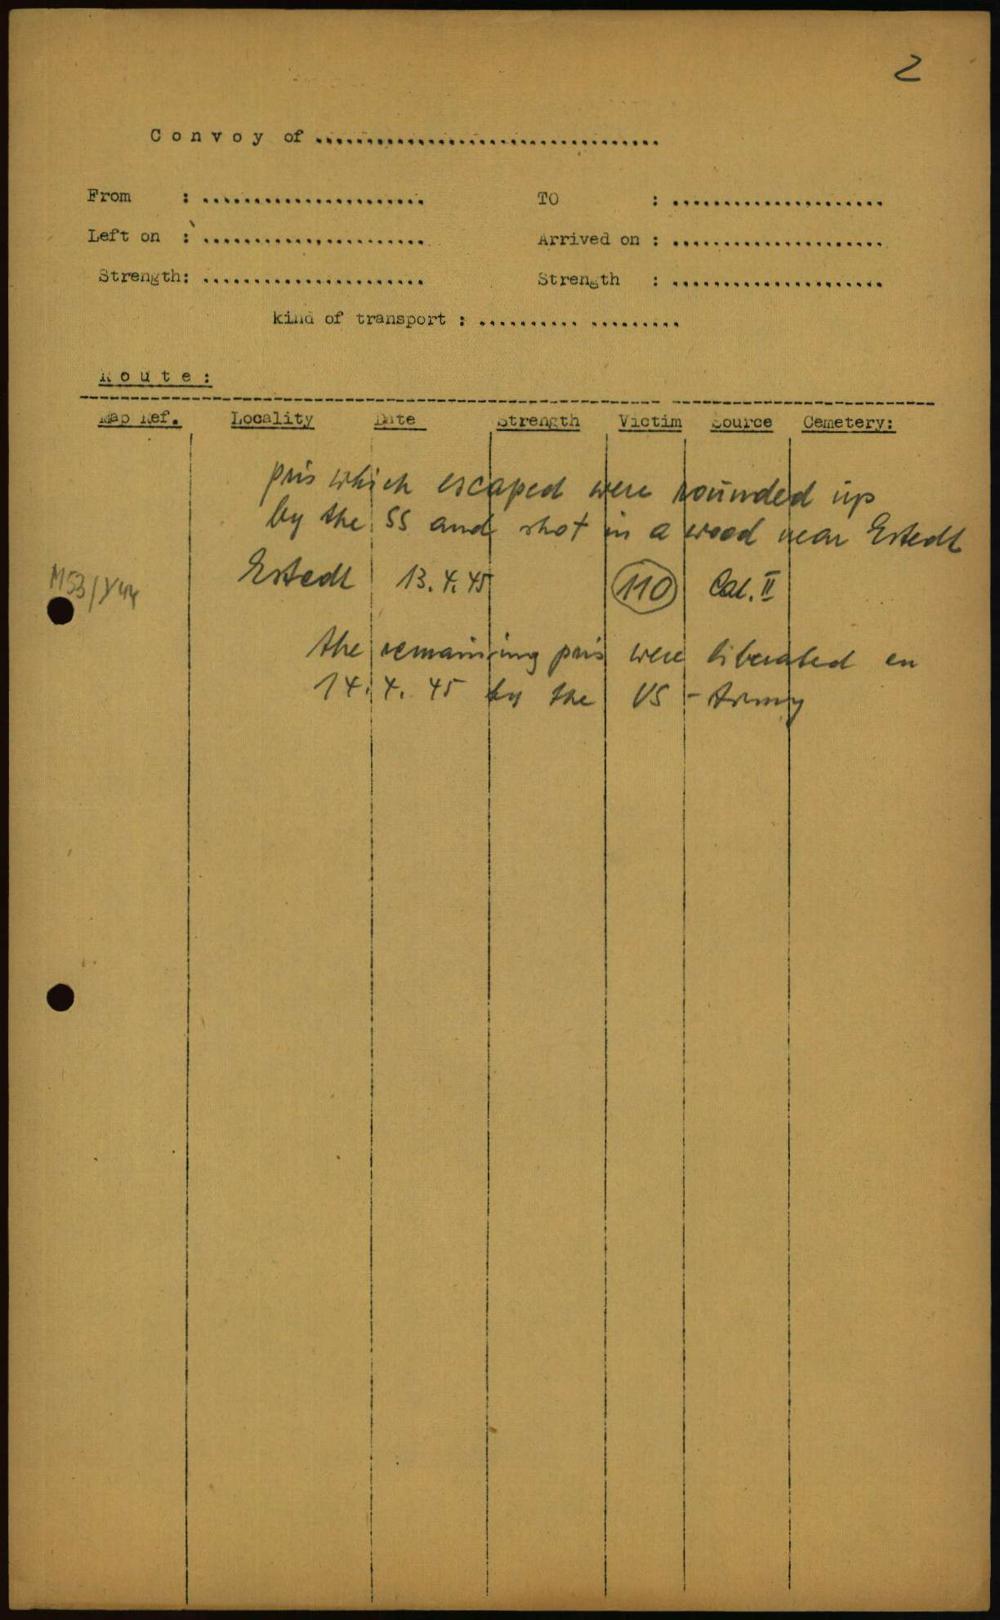 2
Convoy of ..................................
From : ......................
TO : .....................
Left on : ......................
Arrived on : .....................
Strength: ......................
Strength : .....................
kind of transport : .......... .........
Route:
Map Ref. Locality Date Strength Victim Source Cemetery:
pris which escaped were rounded up
by the SS and shot in a wood near Estedt
M53/Y44 Estedt 13.4.45 110 Cal. II
the remaining pris were liberated on
14.4.45 by the US-Army